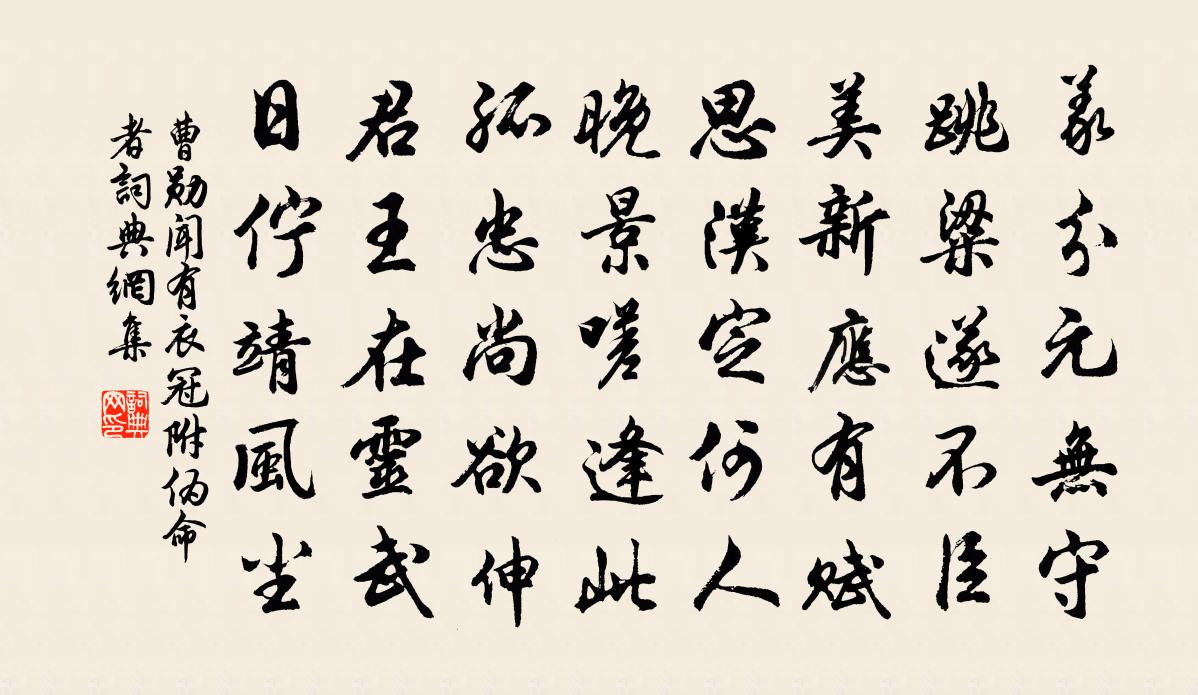 義分元無守
跳梁遂不臣
美新應有賦
思漢定何人
晚景嗟逢此
孤忠尚欲伸
君王在靈武
日佇靖風塵
曹勛聞有衣冠附偽命
者詞典網集
詞典
网印